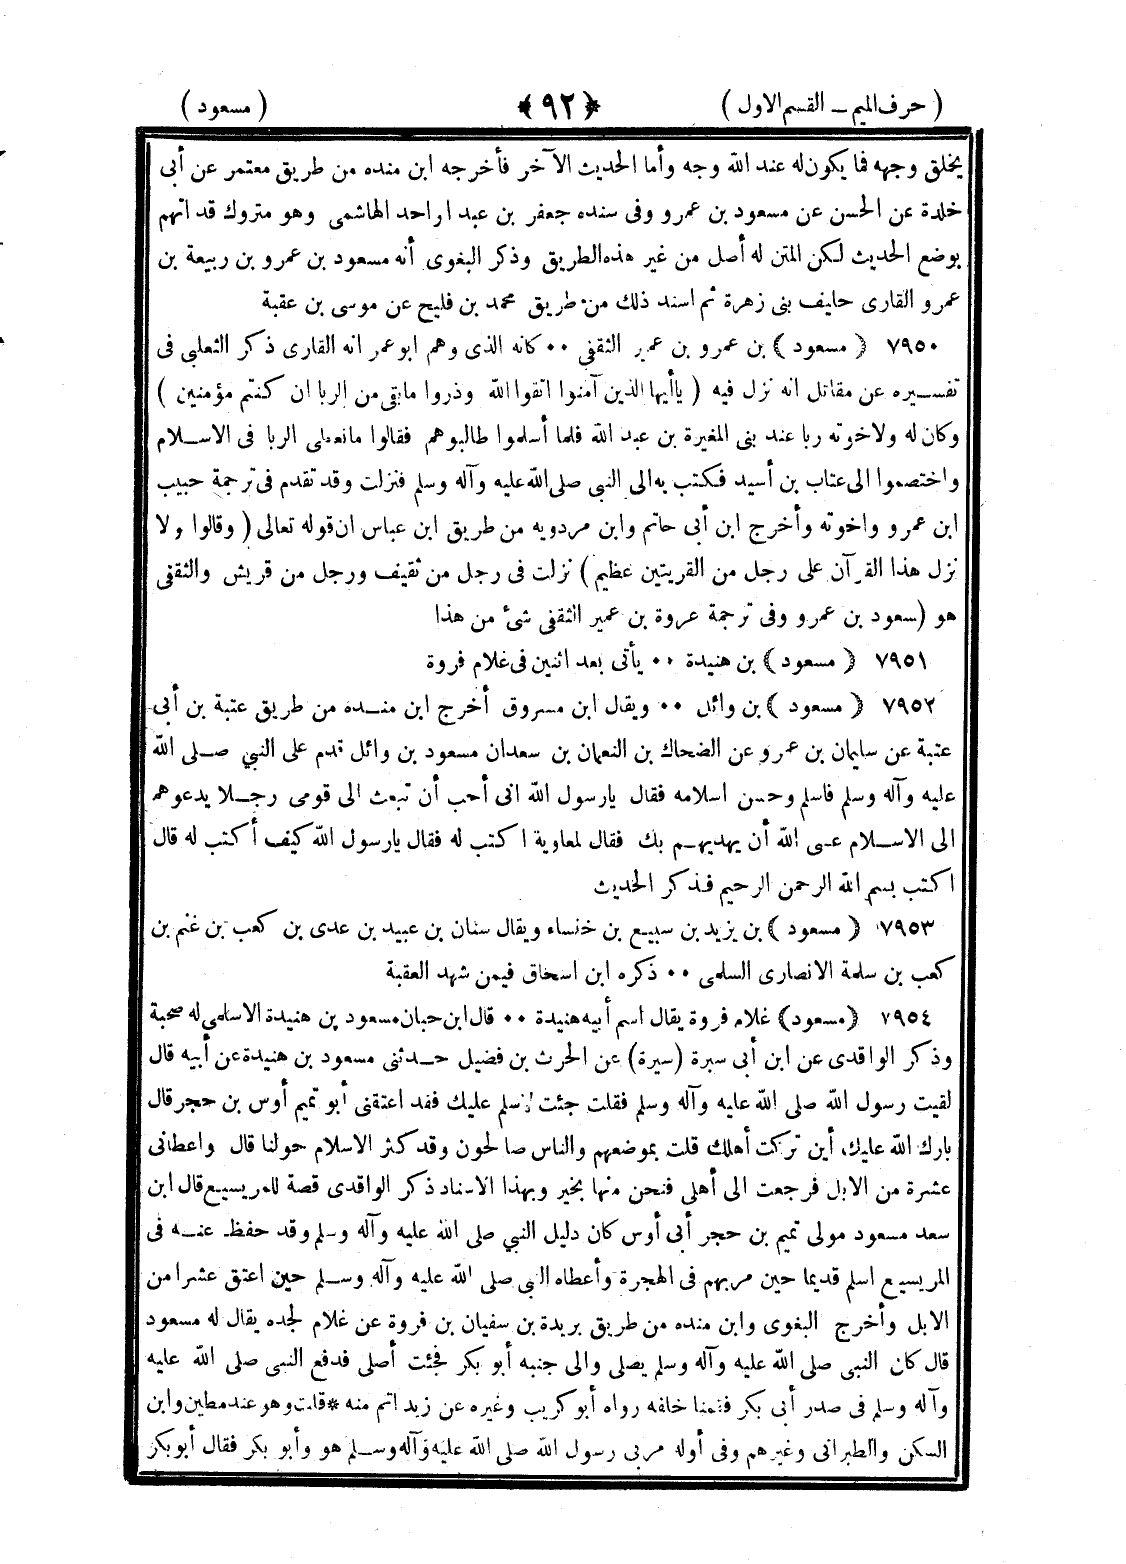 ( حرف الميم ــ القسم الاول )
﴿ ٩٢ ﴾
( مسعود )
يخلق وجهه فما يكون له عند الله وجه وأما الحديث الآخر فأخرجه ابن منده من طريق معتمر عن أبى
خلدة عن الحسن عن مسعود بن عمرو وفى سنده جعفر بن عبد اراحد الهاشمى وهو متروك قد اتهم
بوضع الحديث لكن المتن له أصل من غير هذه الطريق وذكر البغوى أنه مسعود بن عمرو بن ربيعة بن
عمرو القارى حليف بنى زهرة ثم اسند ذلك من طريق محمد بن فليح عن موسى بن عقبة
٧٩٥٠ ﴿ مسعود ﴾ بن عمرو بن عمير الثقفى ٠٠ كانه الذى وهم ابو عمر انه القارى ذكر الثعلبى فى
تفسيره عن مقاتل انه نزل فيه ( ياأيها الذين آمنوا اتقوا الله وذروا مابقى من الربا ان كنتم مؤمنين )
وكان له ولاخوته ربا عند بنى المغيرة بن عبد الله فلما أسلموا طالبوهم فقالوا مانعطى الربا فى الاسلام
واختصموا الى عتاب بن أسيد فكتب به الى النبى صلى الله عليه وآله وسلم فنزلت وقد تقدم فى ترجمة حبيب
ابن عمرو واخوته وأخرج ابن أبى حاتم وابن مردويه من طريق ابن عباس ان قوله تعالى ( وقالوا ولا
نزل هذا القرآن على رجل من القريتين عظيم ) نزلت فى رجل من ثقيف ورجل من قريش والثقفى
هو (سعود بن عمرو وفى ترجمة عروة بن عمير الثقفى شئ من هذا
٧٩٥١ ﴿ مسعود ﴾ بن هنيدة ٠٠ يأتى بعد اثنين فى غلام فروة
٧٩٥٢ ﴿ مسعود ﴾ بن وائل ٠٠ ويقال ابن مسروق أخرج ابن منده من طريق عتبة بن أبى
عتبة عن سليمان بن عمرو عن الضحاك بن النعمان بن سعد ان مسعود بن وائل قدم على النبي صلى الله
عليه وآله وسلم فاسلم وحسن اسلامه فقال يارسول الله انى أحب أن تبعث الى قومى رجلا يدعوهم
الى الاسلام عسى الله أن يهديهم بك فقال لمعاوية اكتب له فقال يارسول الله كيف أكتب له قال
اكتب بسم الله الرحمن الرحيم فذكر الحديث
٧٩٥٣ ﴿ مسعود ﴾ بن يزيد بن سبيع بن خنساء ويقال سنان بن عبيد بن عدى بن كعب بن غنم بن
كعب بن سلمة الانصارى السلمى ٠٠ ذكره ابن اسحاق فيمن شهد العقبة
٧٩٥٤ ﴿مسعود﴾ غلام فروة يقال اسم أبيه هنيدة ٠٠ قال ابن حبان مسعود بن هنيدة الاسلمى له صحبة
وذكر الواقدى عن ابن أبى سبرة (سيرة) عن الحرث بن فضيل حدثنى مسعود بن هنيدة عن أبيه قال
لقيت رسول الله صلى الله عليه وآله وسلم فقلت جئت لاسلم عليك فقد اعتقنى أبو تميم أوس بن حجر قال
بارك الله عليك، أين تركت أهلك قلت بموضعهم والناس صالحون وقد كثر الاسلام حولنا قال واعطانى
عشرة من الابل فرجعت الى أهلى فنحن منها بخير وبهذا الاسناد ذكر الواقدى قصة للمريسيع قال ابن
سعد مسعود مولى تميم بن حجر أبى أوس كان دليل النبي صلى الله عليه وآله وسلم وقد حفظ عنه فى
المريسيع اسلم قديما حين مر بهم فى الهجرة وأعطاه النبى صلى الله عليه وآله وسلم حين اعتق عشرا من
الابل وأخرج البغوى وابن منده من طريق بريدة بن سفيان بن فروة عن غلام لجده يقال له مسعود
قال كان النبى صلى الله عليه وآله وسلم يصلى والى جنبه أبو بكر فجئت أصلى فدفع النبى صلى الله عليه
وآله وسلم فى صدر أبى بكر فقمنا خلفه رواه أبو كريب وغيره عن زيد اتم منه * قلت وهو عند مطين وابن
السكن والطبرانى وغيرهم وفى أوله مر بى رسول الله صلى الله عليه وآله وسلم هو وأبو بكر فقال أبو بكر